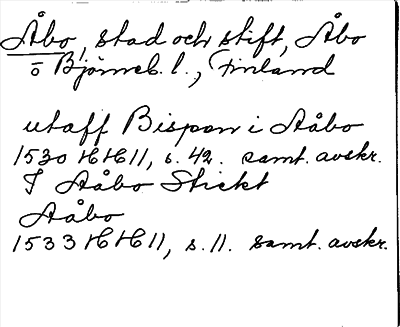 Åbo, stad och stift, Åbo
o Björneb. l., Finland
utaff Bispen i Aåbo
1530 HH 11, s. 42. samt. avskr.
I Aåbo Stickt
Aåbo
1533 HH 11, s. 11. samt. avskr.